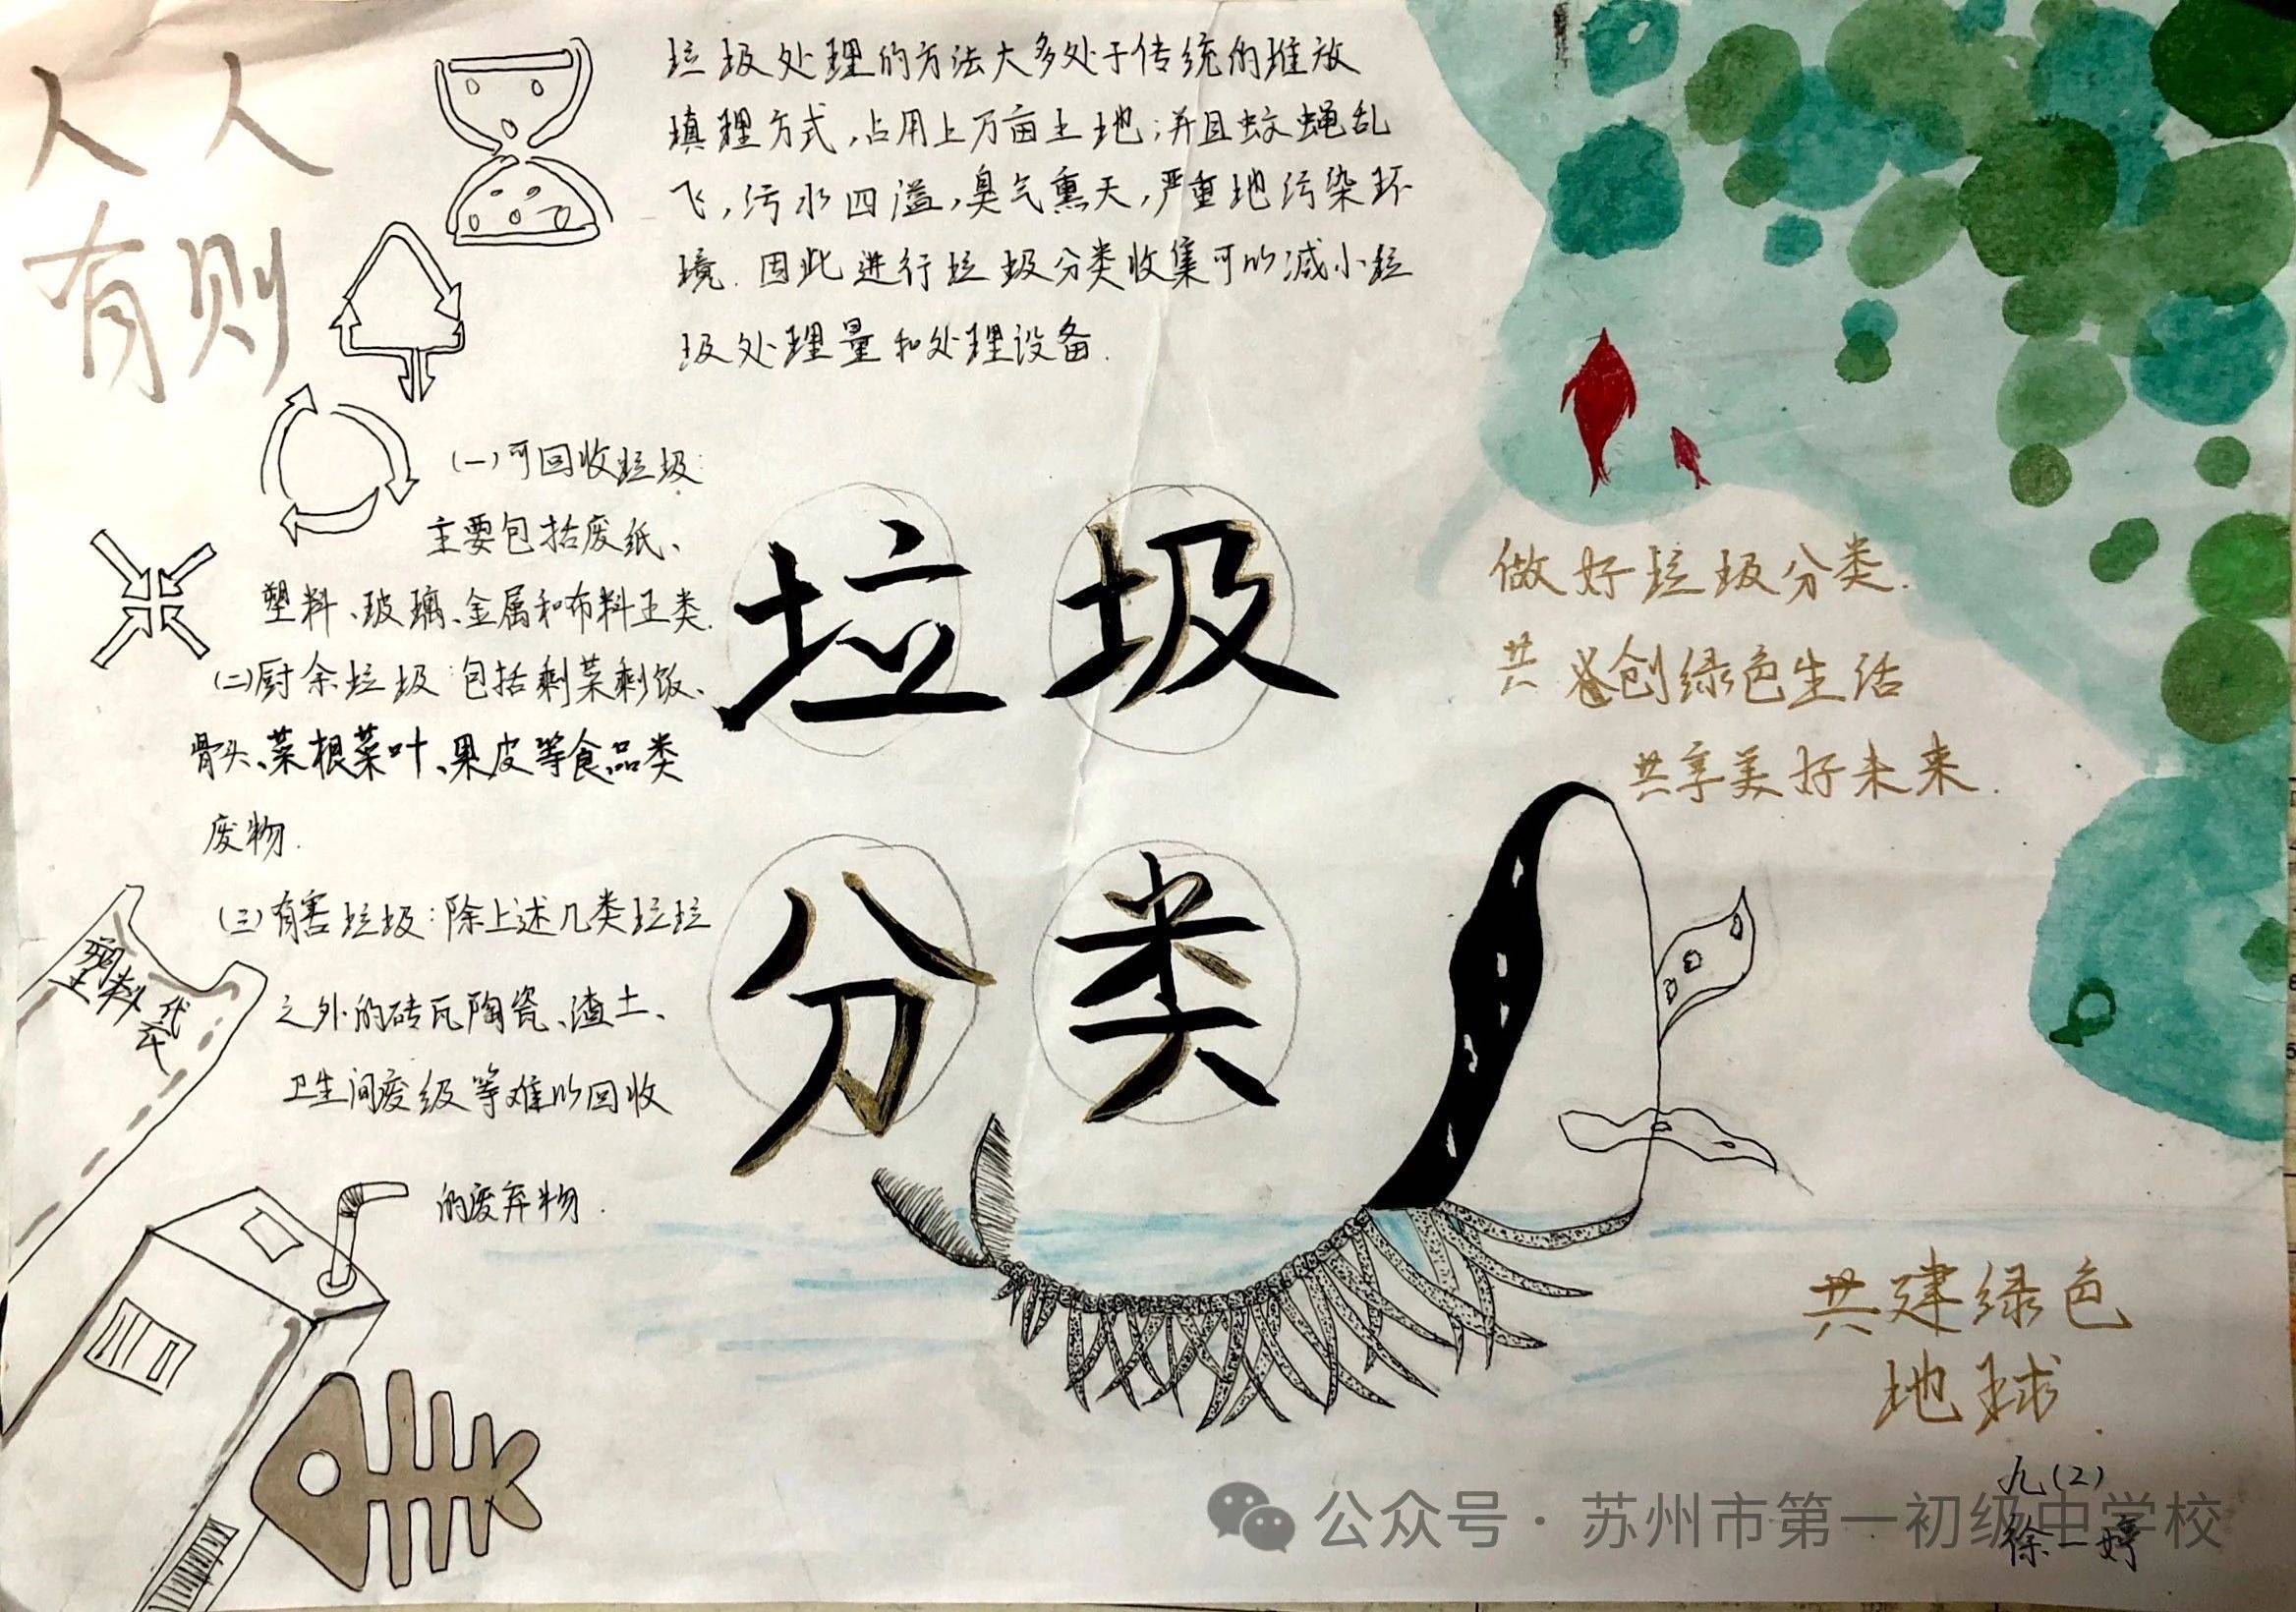 人人
有则
垃圾处理的方法大多处于传统的堆放
填理方式,占用上万亩土地;并且蚊蝇乱
飞,污水四溢,臭气熏天,严重地污染环
境.因此进行垃圾分类收集可以减小垃
圾处理量和处理设备.
(一)可回收垃圾:
主要包括废纸、
塑料、玻璃、金属和布料五类.
(二)厨余垃圾:包括剩菜剩饭、
骨头、菜根菜叶、果皮等食品类
废物.
(三)有害垃圾:除上述几类垃圾
之外的砖瓦陶瓷、渣土、
卫生间废级等难以回收
的废弃物.
塑料代
垃圾
分类
做好垃圾分类.
共创绿色生活
共享美好未来.
共建绿色
地球.
九(2)
徐一婷
公众号·苏州市第一初级中学校